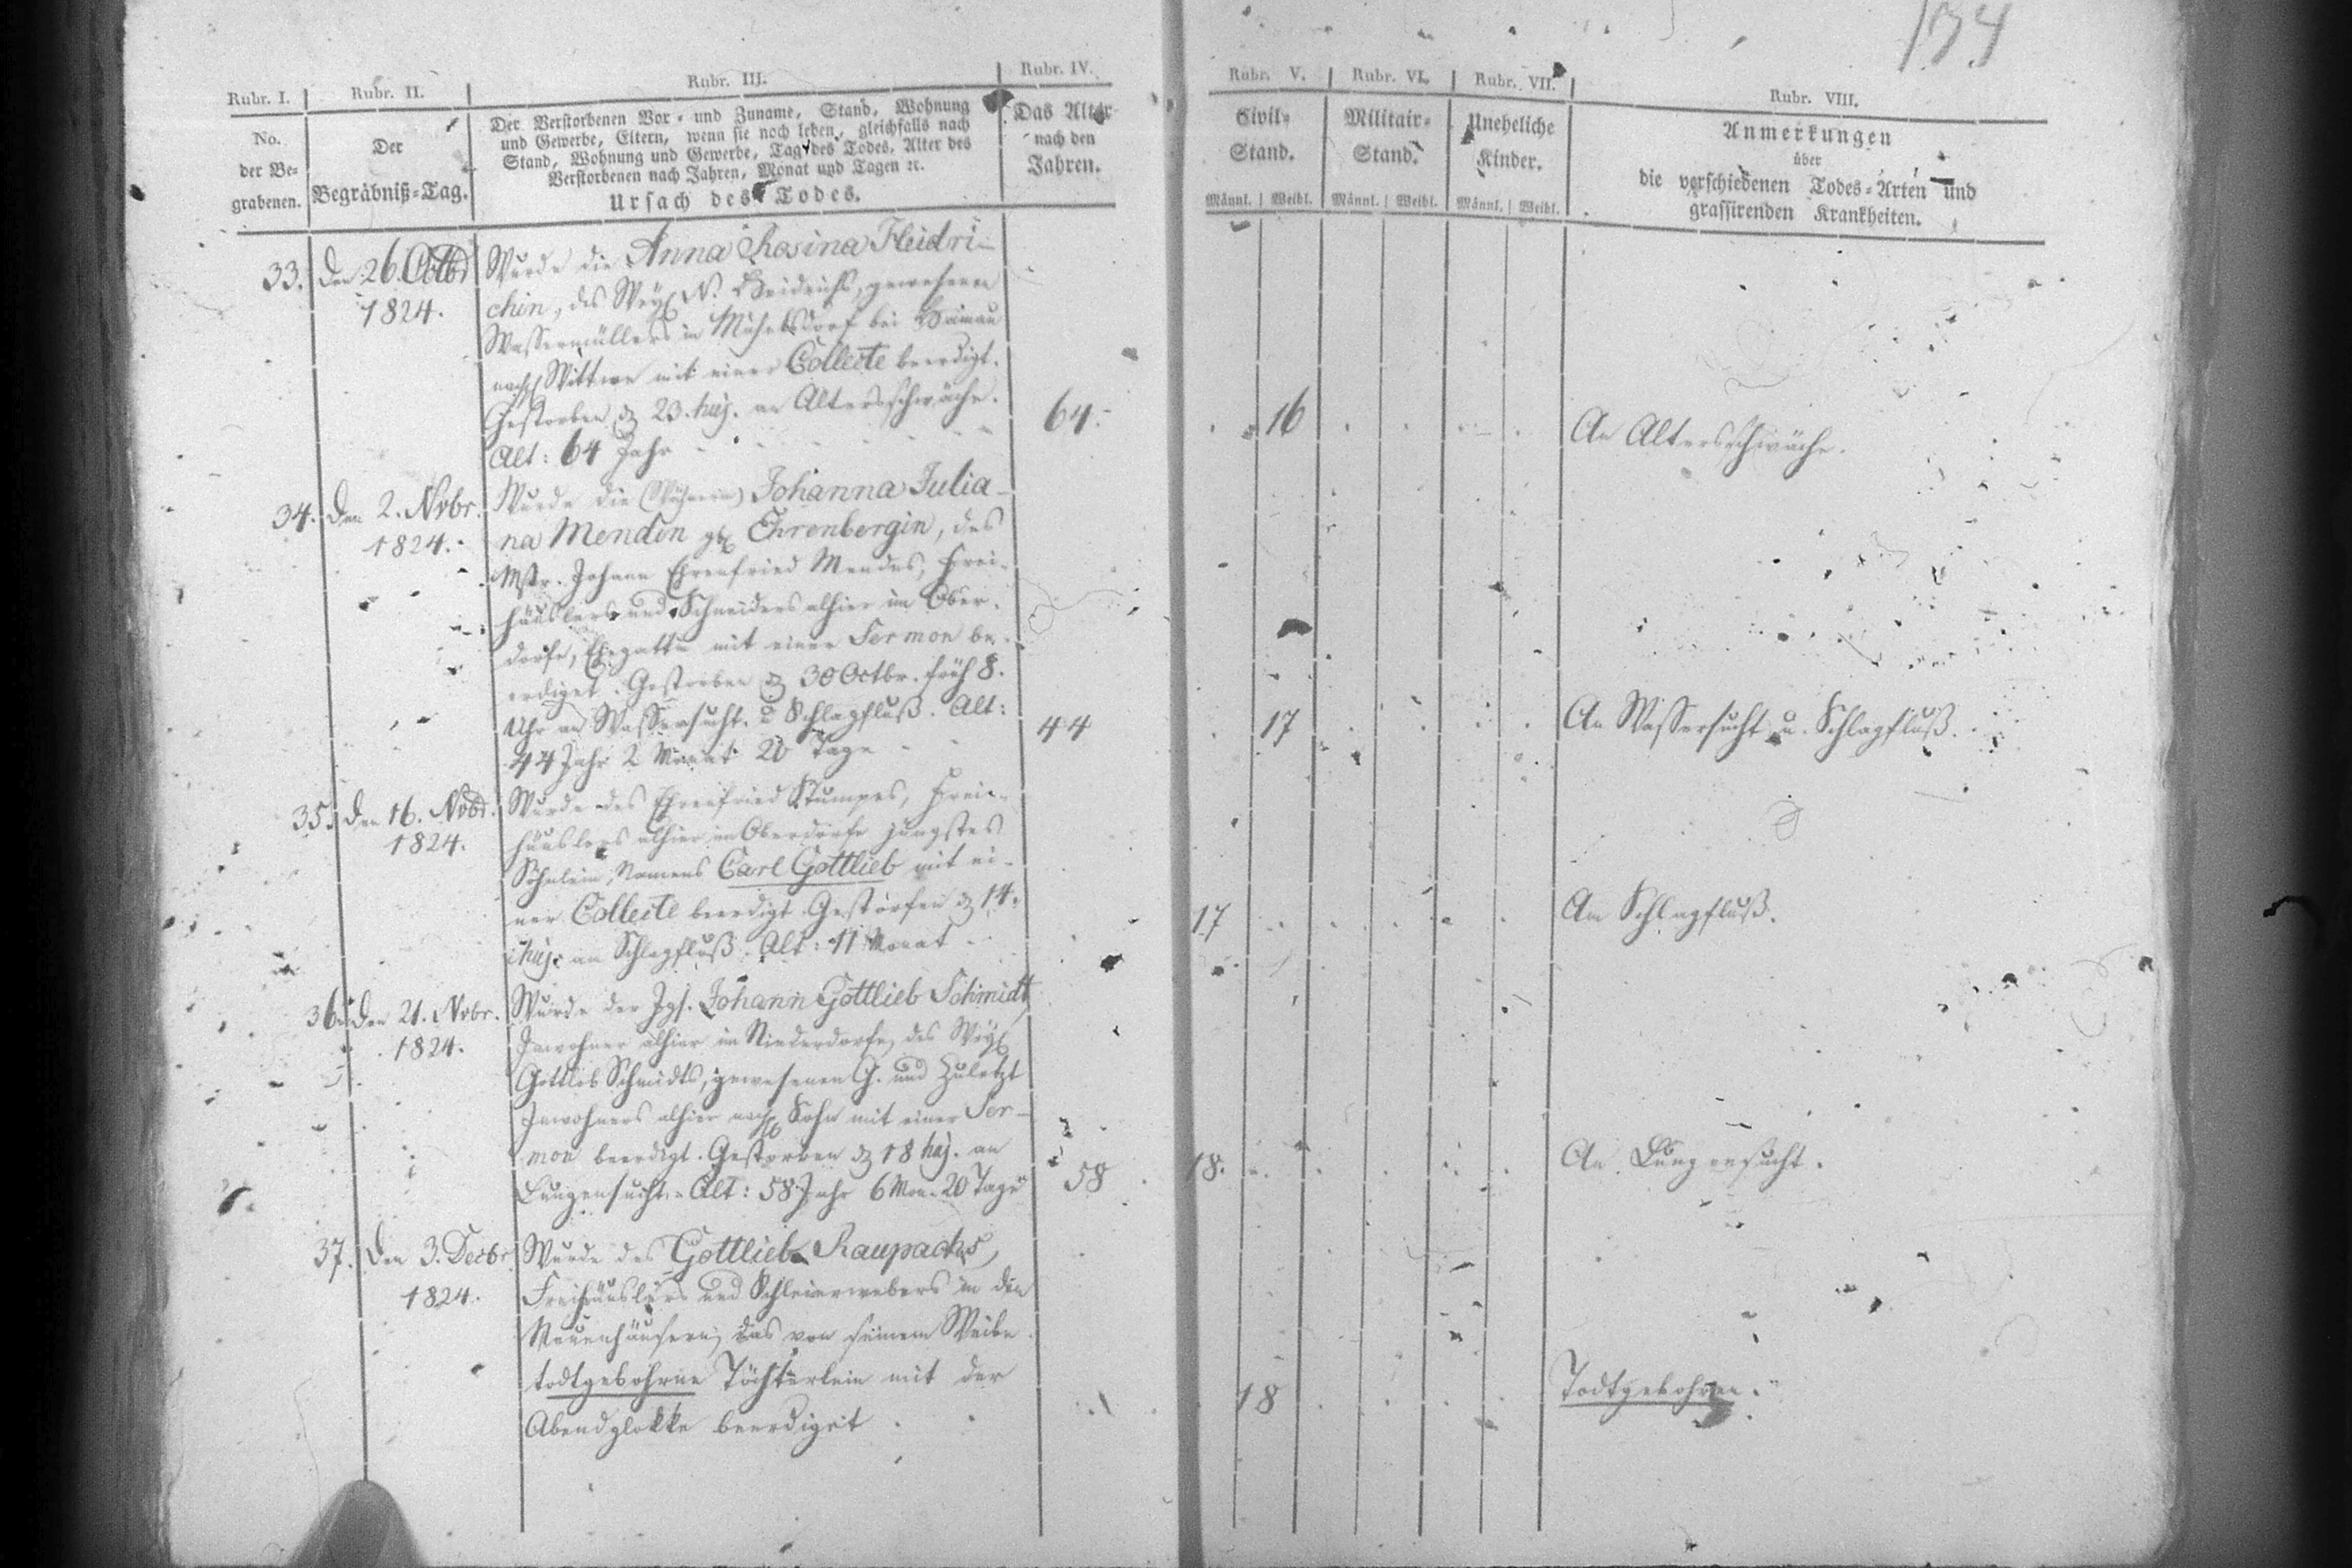 134
Rubr. I. Rubr. II. Rubr. III. Rubr. IV. Rubr. V. Rubr. VI. Rubr. VII. Rubr. VIII.
No.
der Be-
grabenen.
Der
Begräbniß-Tag.
Der Verstorbenen Vor- und Zuname, Stand, Wohnung
und Gewerbe, Eltern, wenn sie noch leben, gleichfalls nach
Stand, Wohnung und Gewerbe, Tag des Todes, Alter des
Verstorbenen nach Jahren, Monat und Tagen ꝛc.
Ursach des Todes.
Das Alter
nach den
Jahren.
Civil-
Stand.
Männl. Weibl.
Militair-
Stand.
Männl. Weibl.
Uneheliche
Kinder.
Männl. Weibl.
Anmerkungen
über
die verschiedenen Todes-Arten und
grassirenden Krankheiten.
33. Den 26. Octbr
1824.
Wurde die Anna Rosina Heidri-
chin, des Weyl N. Heidrichs, gewesenen
Wassermüllers in bei Hainau
nachgl Wittwe mit einer Collecte beerdigt.
Gestorben d 23. huj. an Altersschwäche.
Alt: 64 Jahr
64. 16 An Altersschwäche.
34. Den 2. Nvbr.
1824.
Wurde die Johanna Julia-
na Menden geb Ehrenbergin, des
Mstr. Johann Ehrenfried Mendes, Frei-
häuslers und Schneiders alhier im Ober-
dorfe, Ehegattin mit einer Sermon be-
erdiget. Gestorben d 30 Octbr. früh 8.
Uhr an Wassersucht u Schlagfluß. Alt:
44 Jahr 2 Monat 20 Tage
44 17 An Wassersucht u. Schlagfluß.
35. Den 16. Nvbr.
1824.
Wurde des Ehrenfried Stumpes, Frei-
häuslers alhier im Oberdorfe jüngstes
Söhnlein, Namens Carl Gottlieb mit ei-
ner Collecte beerdigt. Gestorben d 14.
huj. am Schlagfluß. Alt: 11 Monat
17 Am Schlagfluß.
36. Den 21. Nvbr.
1824.
Wurde der Jgs. Johann Gottlieb Schmidt
Inwohner alhier im Niederdorfe, des Weyl
Gottlob Schmidts, gewesenen G. und zuletzt
Inwohners alhier nachgl Sohn mit einer Ser-
mon beerdigt. Gestorben d 18 huj. an
Lungensucht. Alt: 58 Jahr 6 Mon. 20 Tage
58 18. An Lungensucht.
37. Den 3. Decbr
1824.
Wurde des Gottlieb Raupachs,
Freihäuslers und Schleierwebers in den
Neuenhäusern, das von seinem Weibe
todtgebohrne Töchterlein mit der
Abendglokke beerdiget
18 Todtgebohren.